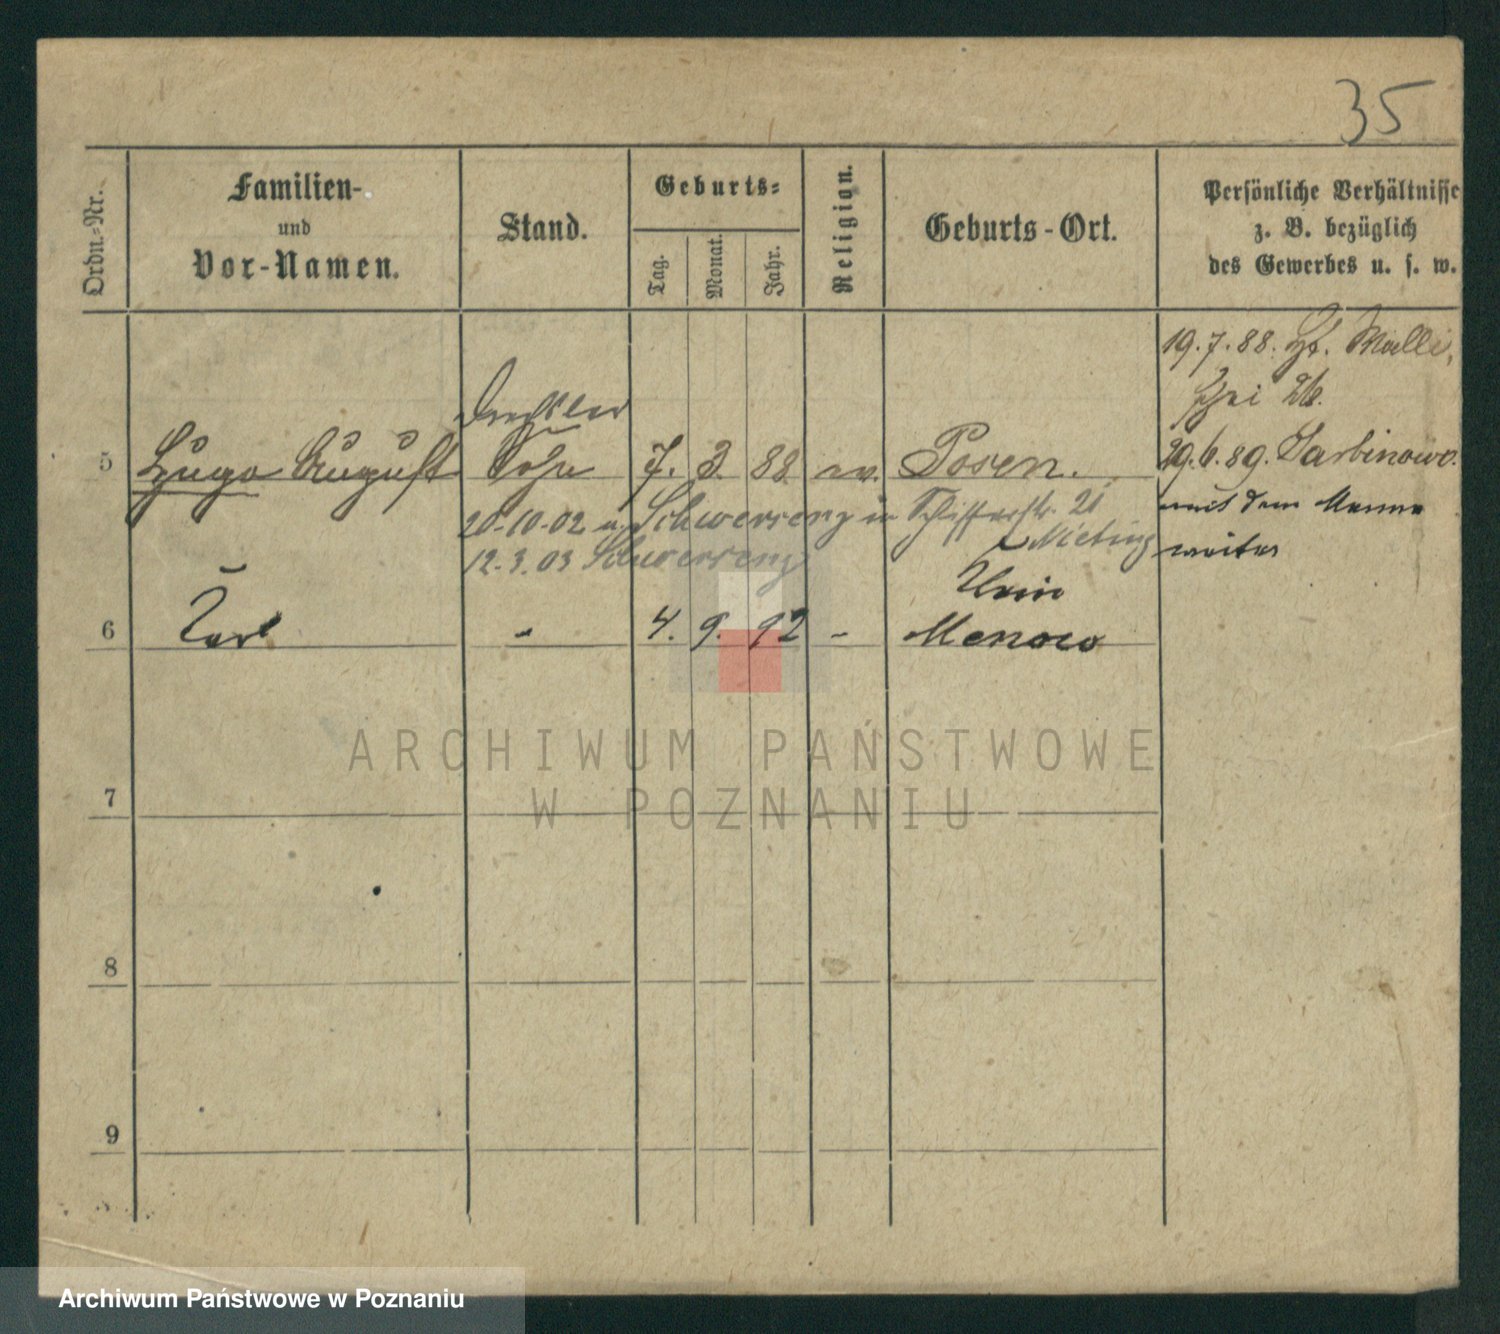 35
Ordn.-Nr.
Familien-
und
Vor-Namen.
Stand.
Geburts-
Tag.
Monat.
Jahr.
Religion.
Geburts-Ort.
Persönliche Verhältnisse
z. B. bezüglich
des Gewerbes u. s. w.
19.7.88.
5 Hugo August Sohn 7. 3. 88 ev. Posen.
29.6.89. Sarbinowo.
20-10-02 Schwersenz in 21
mit dem Manne
12.3.03 Schwersenz
weiter
6 Karl 4. 9. 92 -
ARCHIWUM PAŃSTWOWE
W POZNANIU
7
8
9
Archiwum Państwowe w Poznaniu